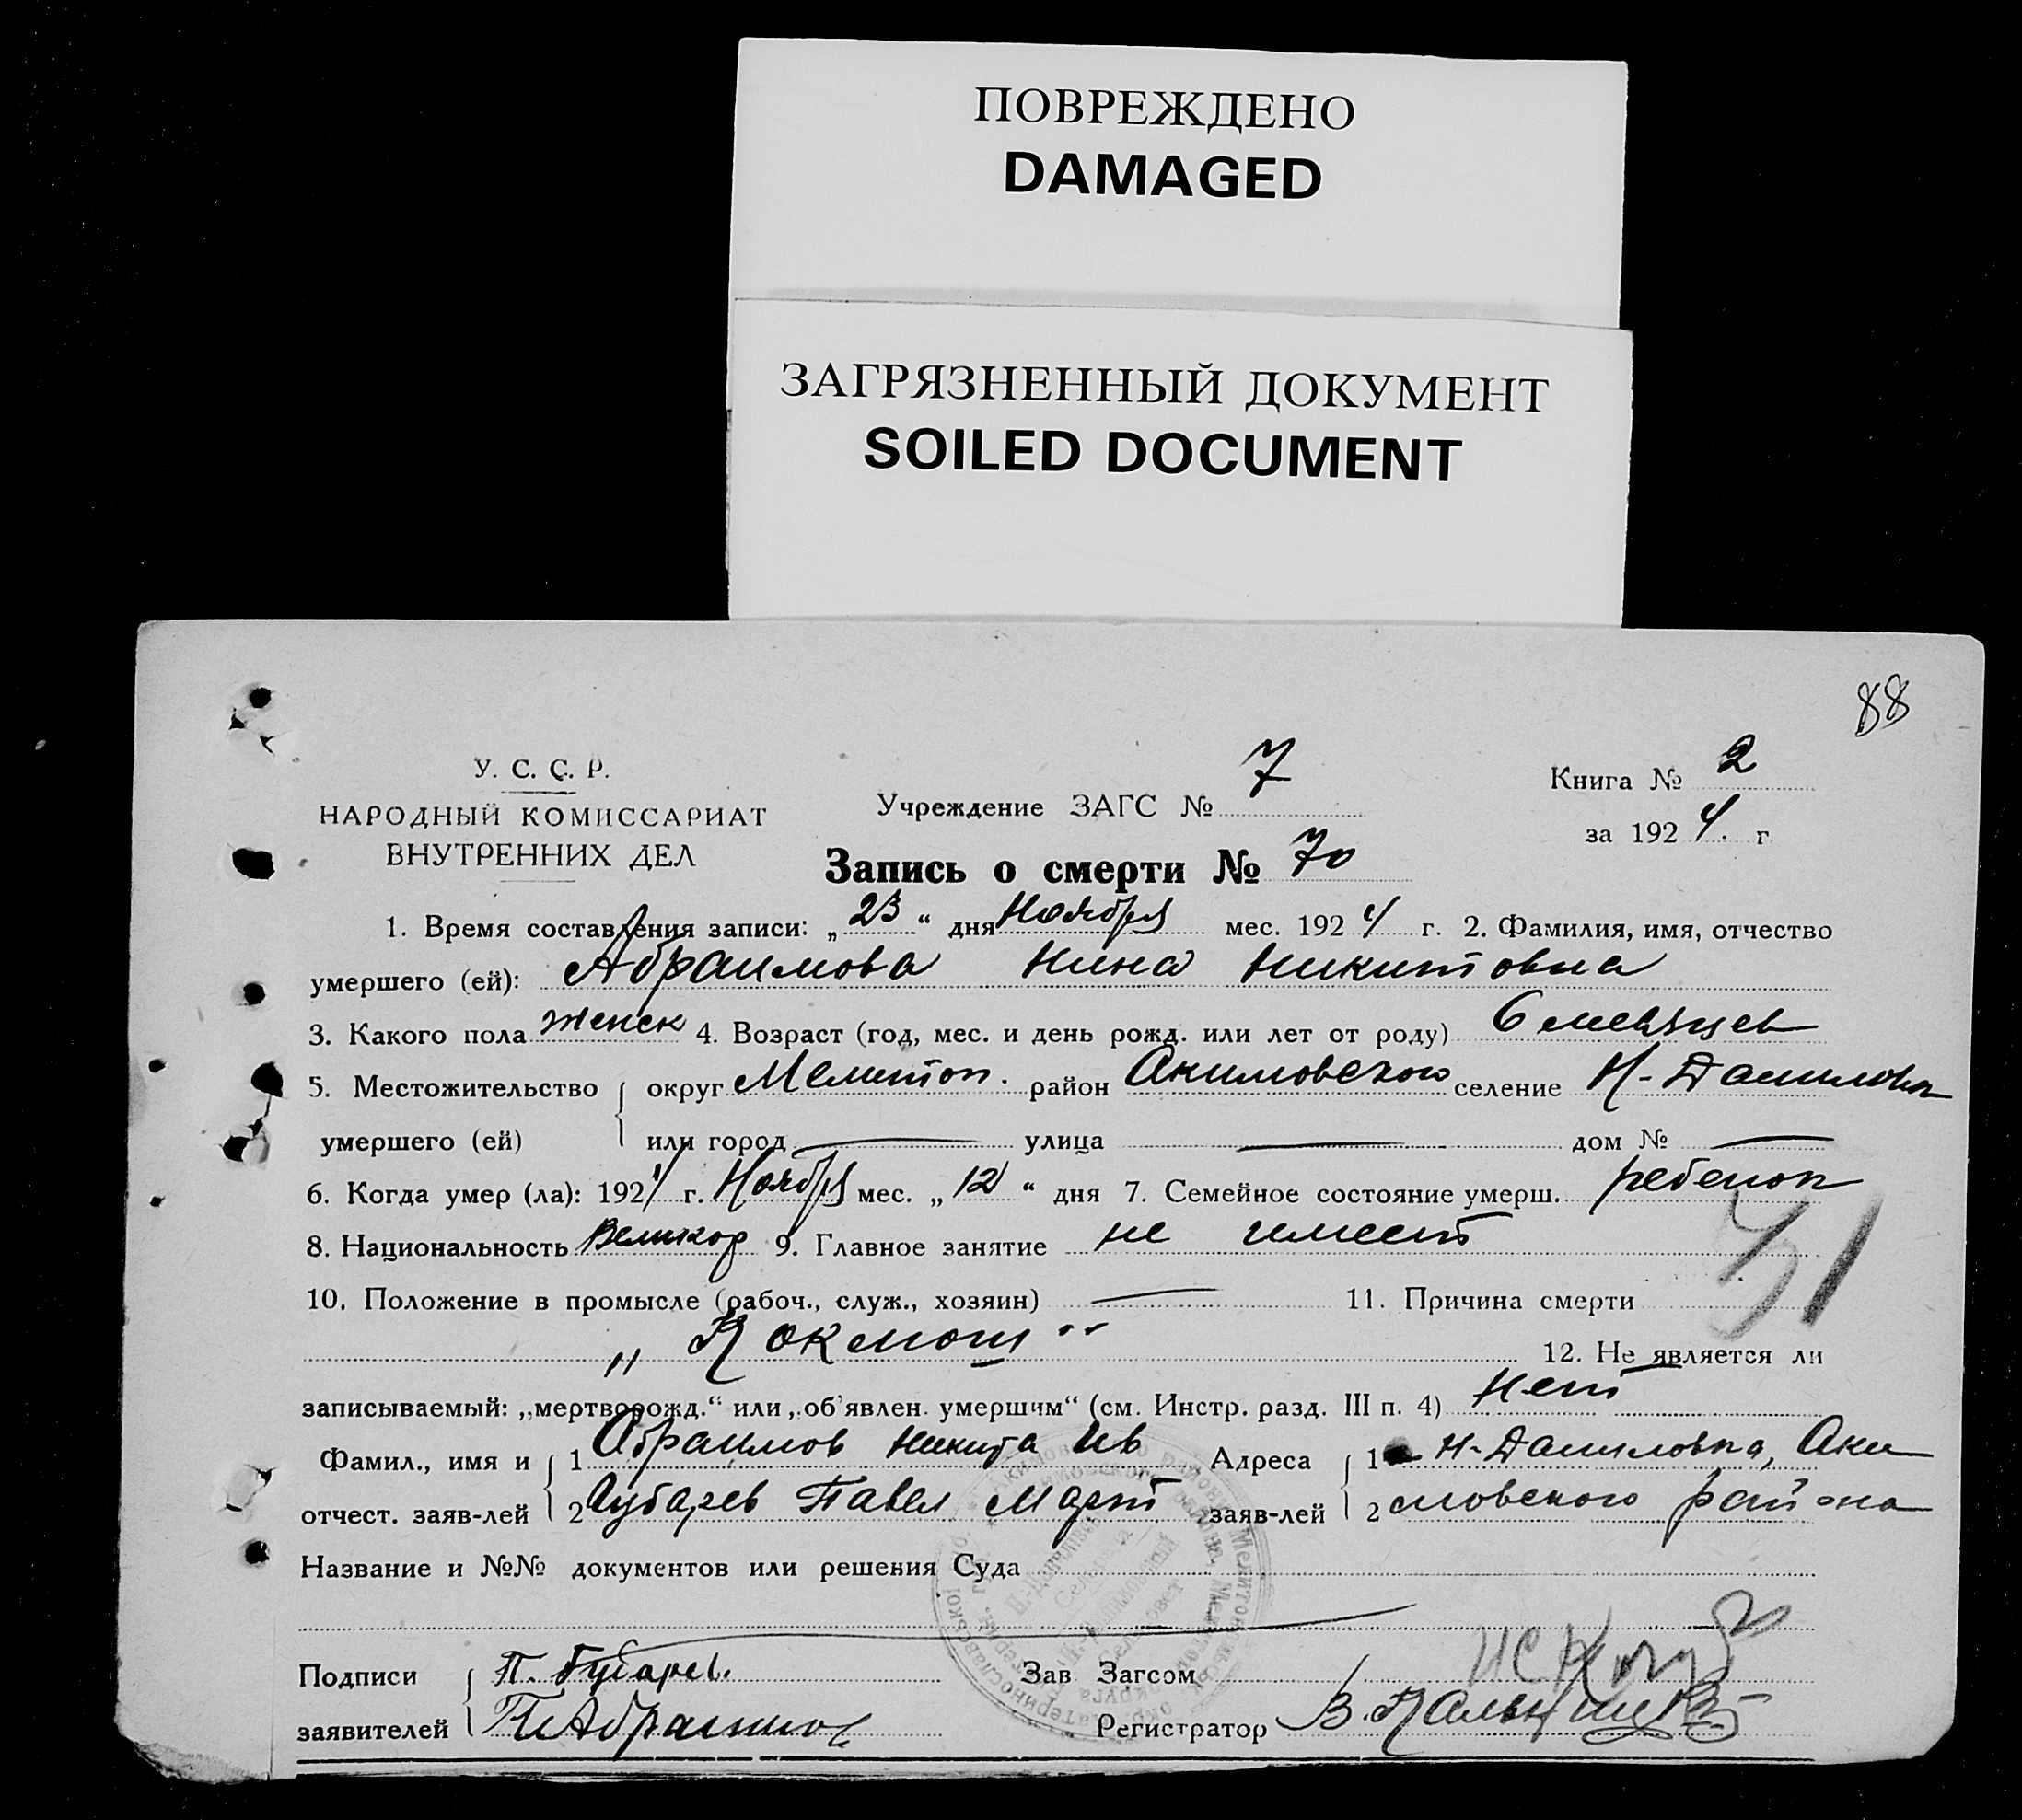 ПОВРЕЖДЕНО
DAMAGED
ЗАГРЯЗНЕННЫЙ ДОКУМЕНТ
SOILED DOCUMENT
88
У. С. С. Р.
НАРОДНЫЙ КОМИССАРИАТ
ВНУТРЕННИХ ДЕЛ
Учреждение ЗАГС № 7
Книга № 2
за 1924 г.
Запись о смерти № 70
1. Время составления записи: „23“ дня Ноября мес. 1924 г. 2. Фамилия, имя, отчество
умершего (ей): Абраимова Нина Никитовна
3. Какого пола женск 4. Возраст (год, мес. и день рожд. или лет от роду) 6 месяцев
5. Местожительство округ Мелитоп. район Акимовского селение Н-Даниловка
умершего (ей) или город — улица — дом № —
6. Когда умер (ла): 1924 г. Ноября мес. „12“ дня 7. Семейное состояние умерш. ребенок
8. Национальность Великор 9. Главное занятие не имеет
10. Положение в промысле (рабоч., служ., хозяин) — 11. Причина смерти
„Коклюш“ 12. Не является ли
записываемый: „мертворожд.“ или „об'явлен. умершим“ (см. Инстр. разд. III п. 4) Нет
Фамил., имя и 1 Абраимов Никита Ив Адреса 1 Н-Даниловка, Аки
отчест. заяв-лей 2 Губарев Павел Март заяв-лей 2 мовского района
Название и №№ документов или решения Суда
Подписи П. Губарев. Зав Загсом
заявителей Абраимов Регистратор В.